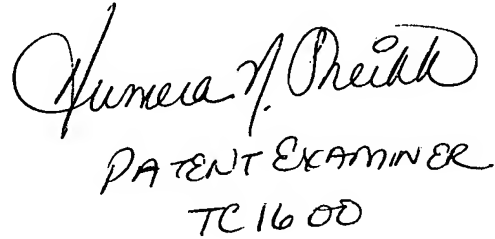 Humera N. Sheikh
PATENT EXAMINER
TC 1600